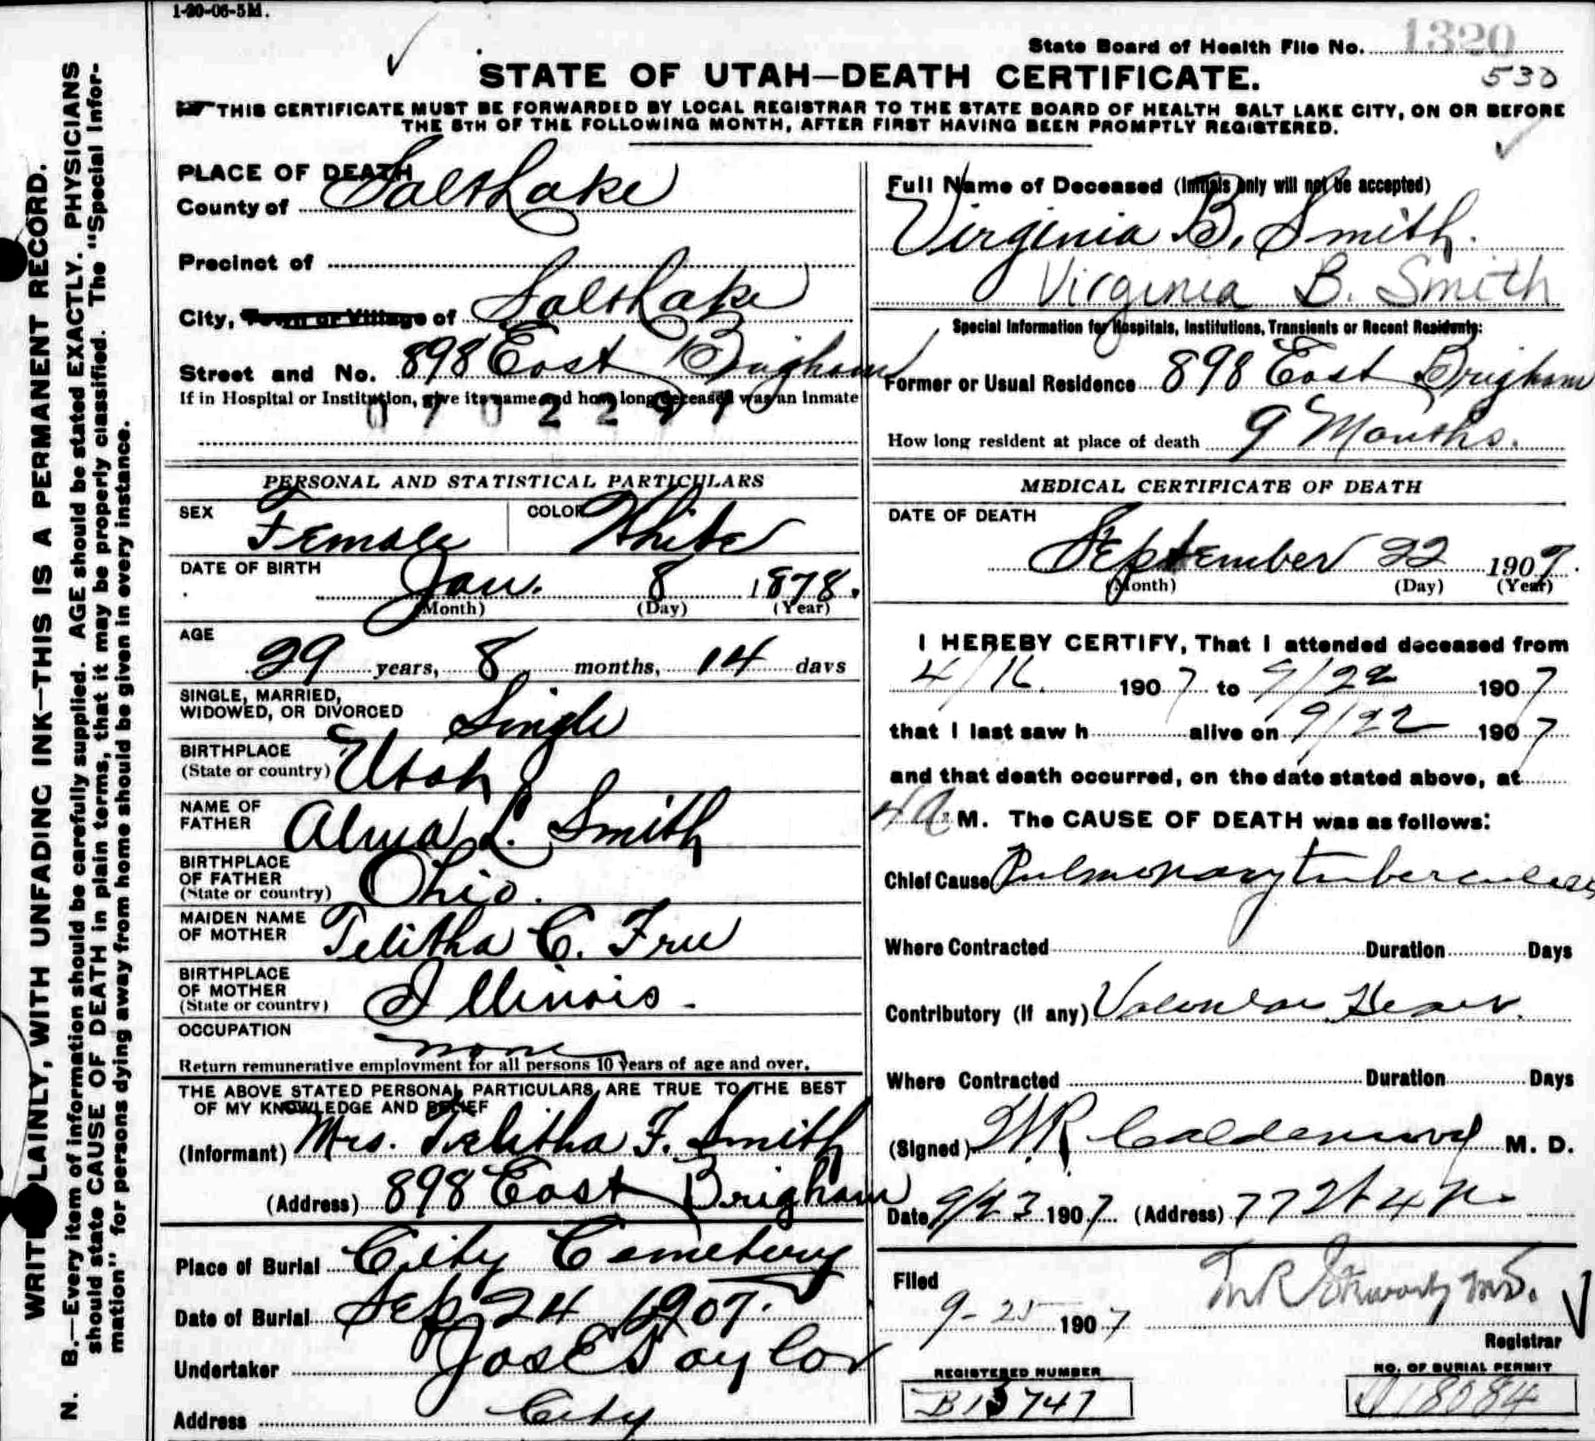 1-20-06-5M.
State Board of Health File No. 1320
530
STATE OF UTAH—DEATH CERTIFICATE.
THIS CERTIFICATE MUST BE FORWARDED BY LOCAL REGISTRAR TO THE STATE BOARD OF HEALTH SALT LAKE CITY, ON OR BEFORE
THE 5TH OF THE FOLLOWING MONTH, AFTER FIRST HAVING BEEN PROMPTLY REGISTERED.
WRITE PLAINLY, WITH UNFADING INK—THIS IS A PERMANENT RECORD.
N. B.—Every item of information should be carefully supplied. AGE should be stated EXACTLY. PHYSICIANS
should state CAUSE OF DEATH in plain terms, that it may be properly classified. The "Special Infor-
mation" for persons dying away from home should be given in every instance.
PLACE OF DEATH
County of Salt Lake
Precinct of
City, Town or Village of Salt Lake
Street and No. 898 East Brigham
If in Hospital or Institution, give its name and how long deceased was an Inmate
PERSONAL AND STATISTICAL PARTICULARS
SEX Female COLOR White
DATE OF BIRTH Jan. 8 1878.
(Month) (Day) (Year)
AGE
29 years, 8 months, 14 days
SINGLE, MARRIED,
WIDOWED, OR DIVORCED Single
BIRTHPLACE
(State or country) Utah
NAME OF
FATHER Alma L. Smith
BIRTHPLACE
OF FATHER
(State or country) Ohio.
MAIDEN NAME
OF MOTHER Telitha C. Free
BIRTHPLACE
OF MOTHER
(State or country) Illinois.
OCCUPATION none
Return remunerative employment for all persons 10 years of age and over.
THE ABOVE STATED PERSONAL PARTICULARS ARE TRUE TO THE BEST
OF MY KNOWLEDGE AND BELIEF
(Informant) Mrs. Telitha F. Smith
(Address) 898 East Brigham
Place of Burial City Cemetery
Date of Burial Sep 24 1907.
Undertaker Jos E Taylor
Address City
Full Name of Deceased (Initials only will not be accepted)
Virginia B. Smith.
Virginia B. Smith
Special Information for Hospitals, Institutions, Transients or Recent Residents:
Former or Usual Residence 898 East Brigham
How long resident at place of death 9 Months.
MEDICAL CERTIFICATE OF DEATH
DATE OF DEATH
September 22 1907.
(Month) (Day) (Year)
I HEREBY CERTIFY, That I attended deceased from
4/16 1907 to 9/22 1907
that I last saw h alive on 9/22 1907
and that death occurred, on the date stated above, at
4 a M. The CAUSE OF DEATH was as follows:
Chief Cause Pulmonary tuberculosis
Where Contracted Duration Days
Contributory (if any) Valvular Heart.
Where Contracted Duration Days
(Signed) W.R. Calderwood M. D.
Date 9/23 1907. (Address) 772
Filed
9-25 1907
Registrar
REGISTERED NUMBER
B13747
NO. OF BURIAL PERMIT
A18084